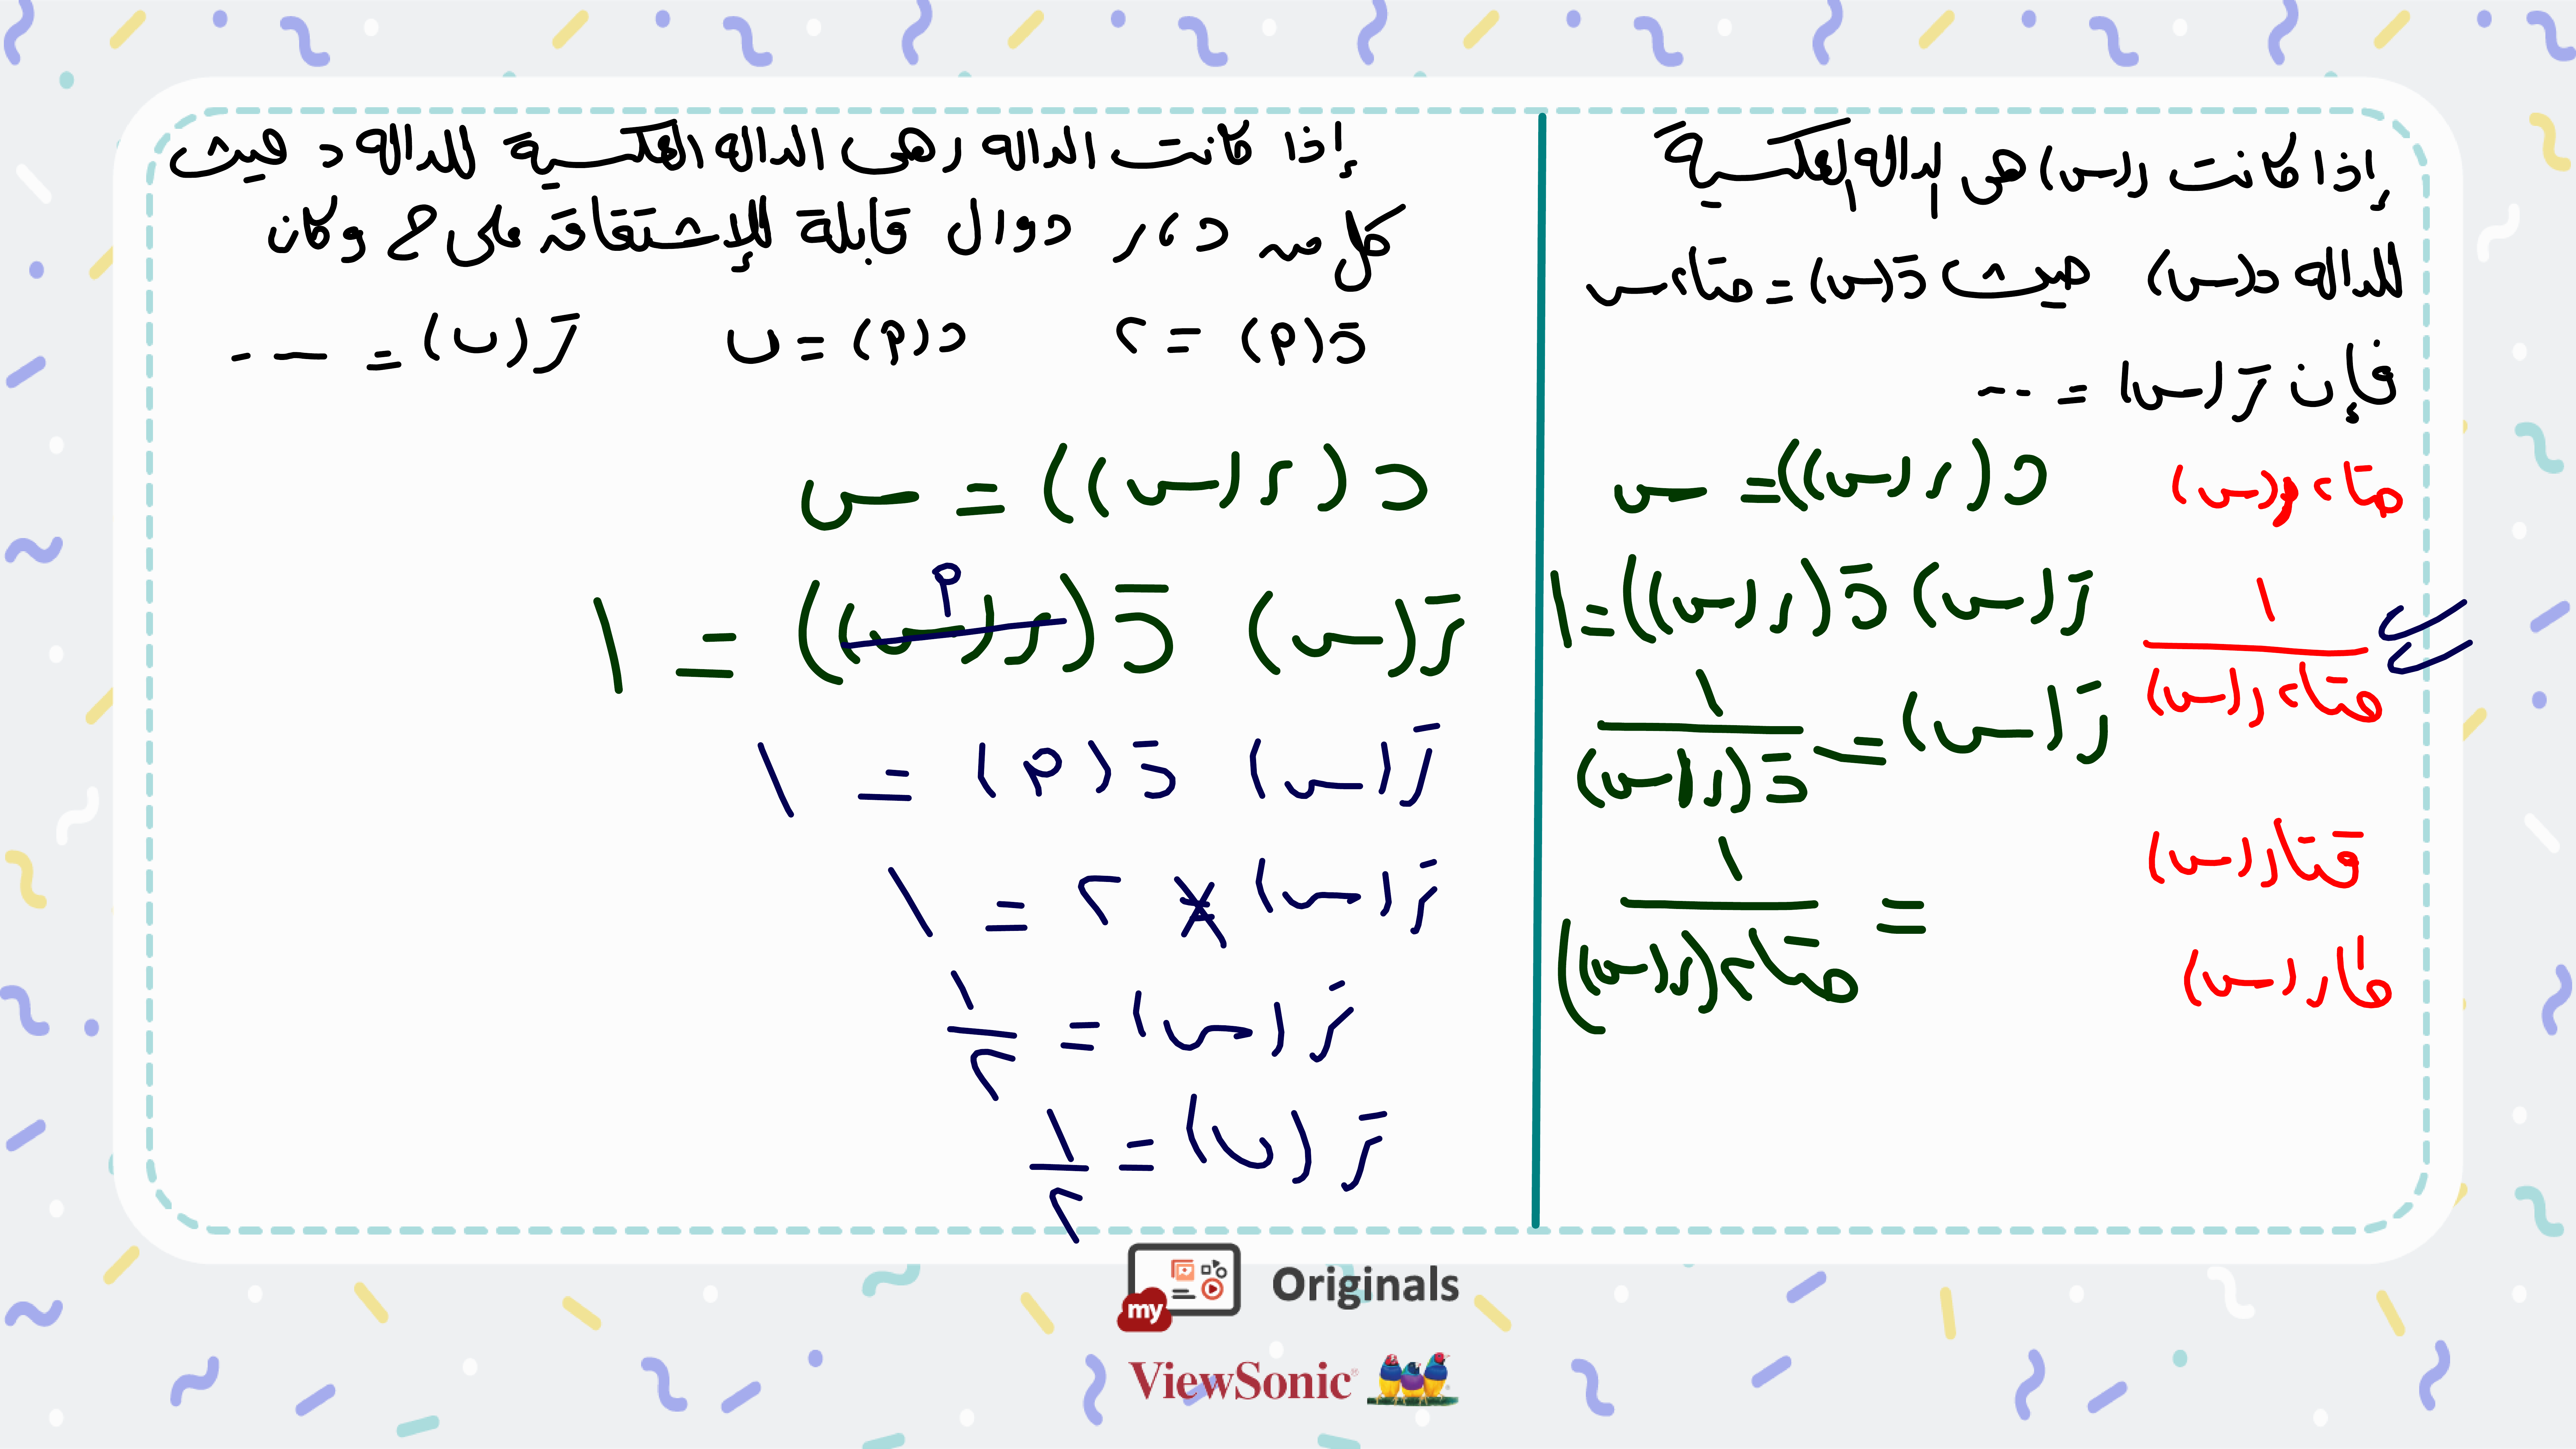 إذا كانت ر(س) هى الداله العكسية
للداله د(س) حيث دَ(س) = حتا٢س
فإن رَ(س) = ---
د(ر(س)) = س
رَ(س) دَ(ر(س)) = ١
رَ(س) = ١/دَ(ر(س))
= ١/حتا٢(ر(س))
١/حتا٢ر(س)
قتار(س)
طار(س)
إذا كانت الداله ر هى الداله العكسية للداله د حيث
كل من د، ر دوال قابلة للإشتقاقة على ح وكان
دَ(م) = ٢ د(م) = ں رَ(ں) = ---
د(ر(س)) = س
رَ(س) دَ(ر(س)) = ١
م
رَ(س) دَ(م) = ١
رَ(س) × ٢ = ١
رَ(س) = ١/٢
رَ(ں) = ١/٢
my Originals
ViewSonic